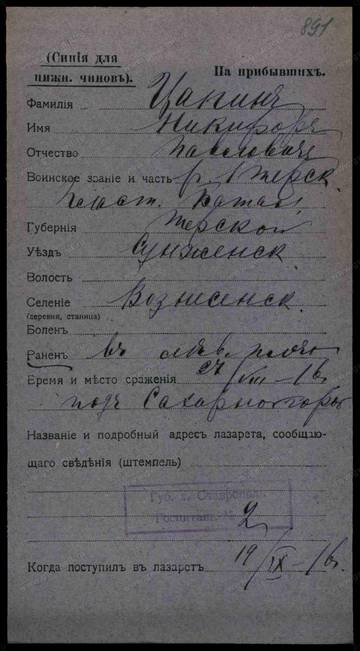 891
(Синія для
нижн. чиновъ).
На прибывшихъ.
Фамилія Цапинъ
Имя Никифоръ
Отчество Павловичъ
Воинское званіе и часть р. 1 Терск.
пласт. батал.
Губернія Терской
Уѣздъ Сунженск
Волость
Селеніе Вознесенск.
(деревня, станица)
Боленъ
Раненъ въ лѣв. плечо
Время и место сраженія VIII—16
подъ Сахарной горой
Названіе и подробный адресъ лазарета, сообщаю-
щаго свѣдѣнія (штемпель)
Губ. г. Ставрополь
Госпиталь №
2
Когда поступилъ въ лазаретъ 19/IX—16